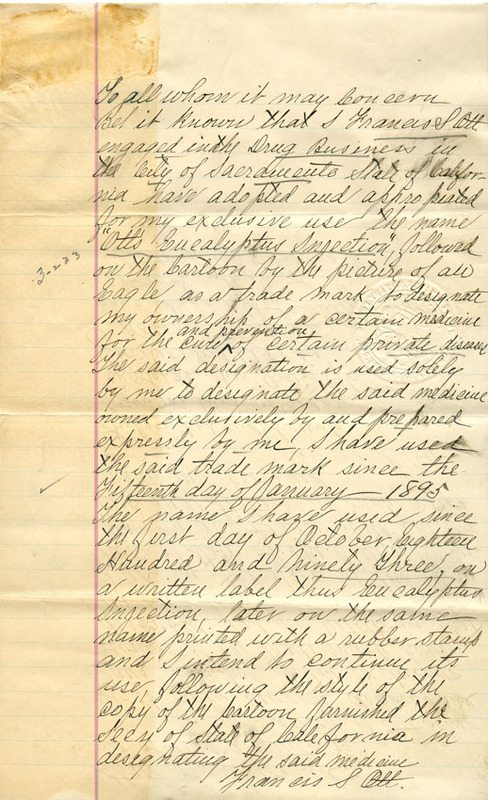 To all whom it may Concern
Bet it Known that I Francis S Ott
engaged in the Drug Business in
the City of Sacramento State of Califor-
nia have adopted and appropriated
for my exclusive use the name
"Ott's Eucalyptus Injection", followed
on the Cartoon by the picture of an
Eagle, as a trade mark to designate
my ownership of a certain medicine
for the cure and prevention of certain private disease
The said designation is used solely
by me to designate the said medicine
owned exclusively by and prepared
expressly by me, I have used
the said trade mark since the
Fifteenth day of January 1895
The name I have used since
the first day of October, Eighteen
Hundred and Ninety Three, on
a written label thus Eucalyptus
Injection, later on the same
name printed with a rubber stamp
and I intend to continue its
use, following the style of the
copy of the Cartoon furnished the
Secy of State of California in
designating the said medicine
Francis S Ott.
3-233